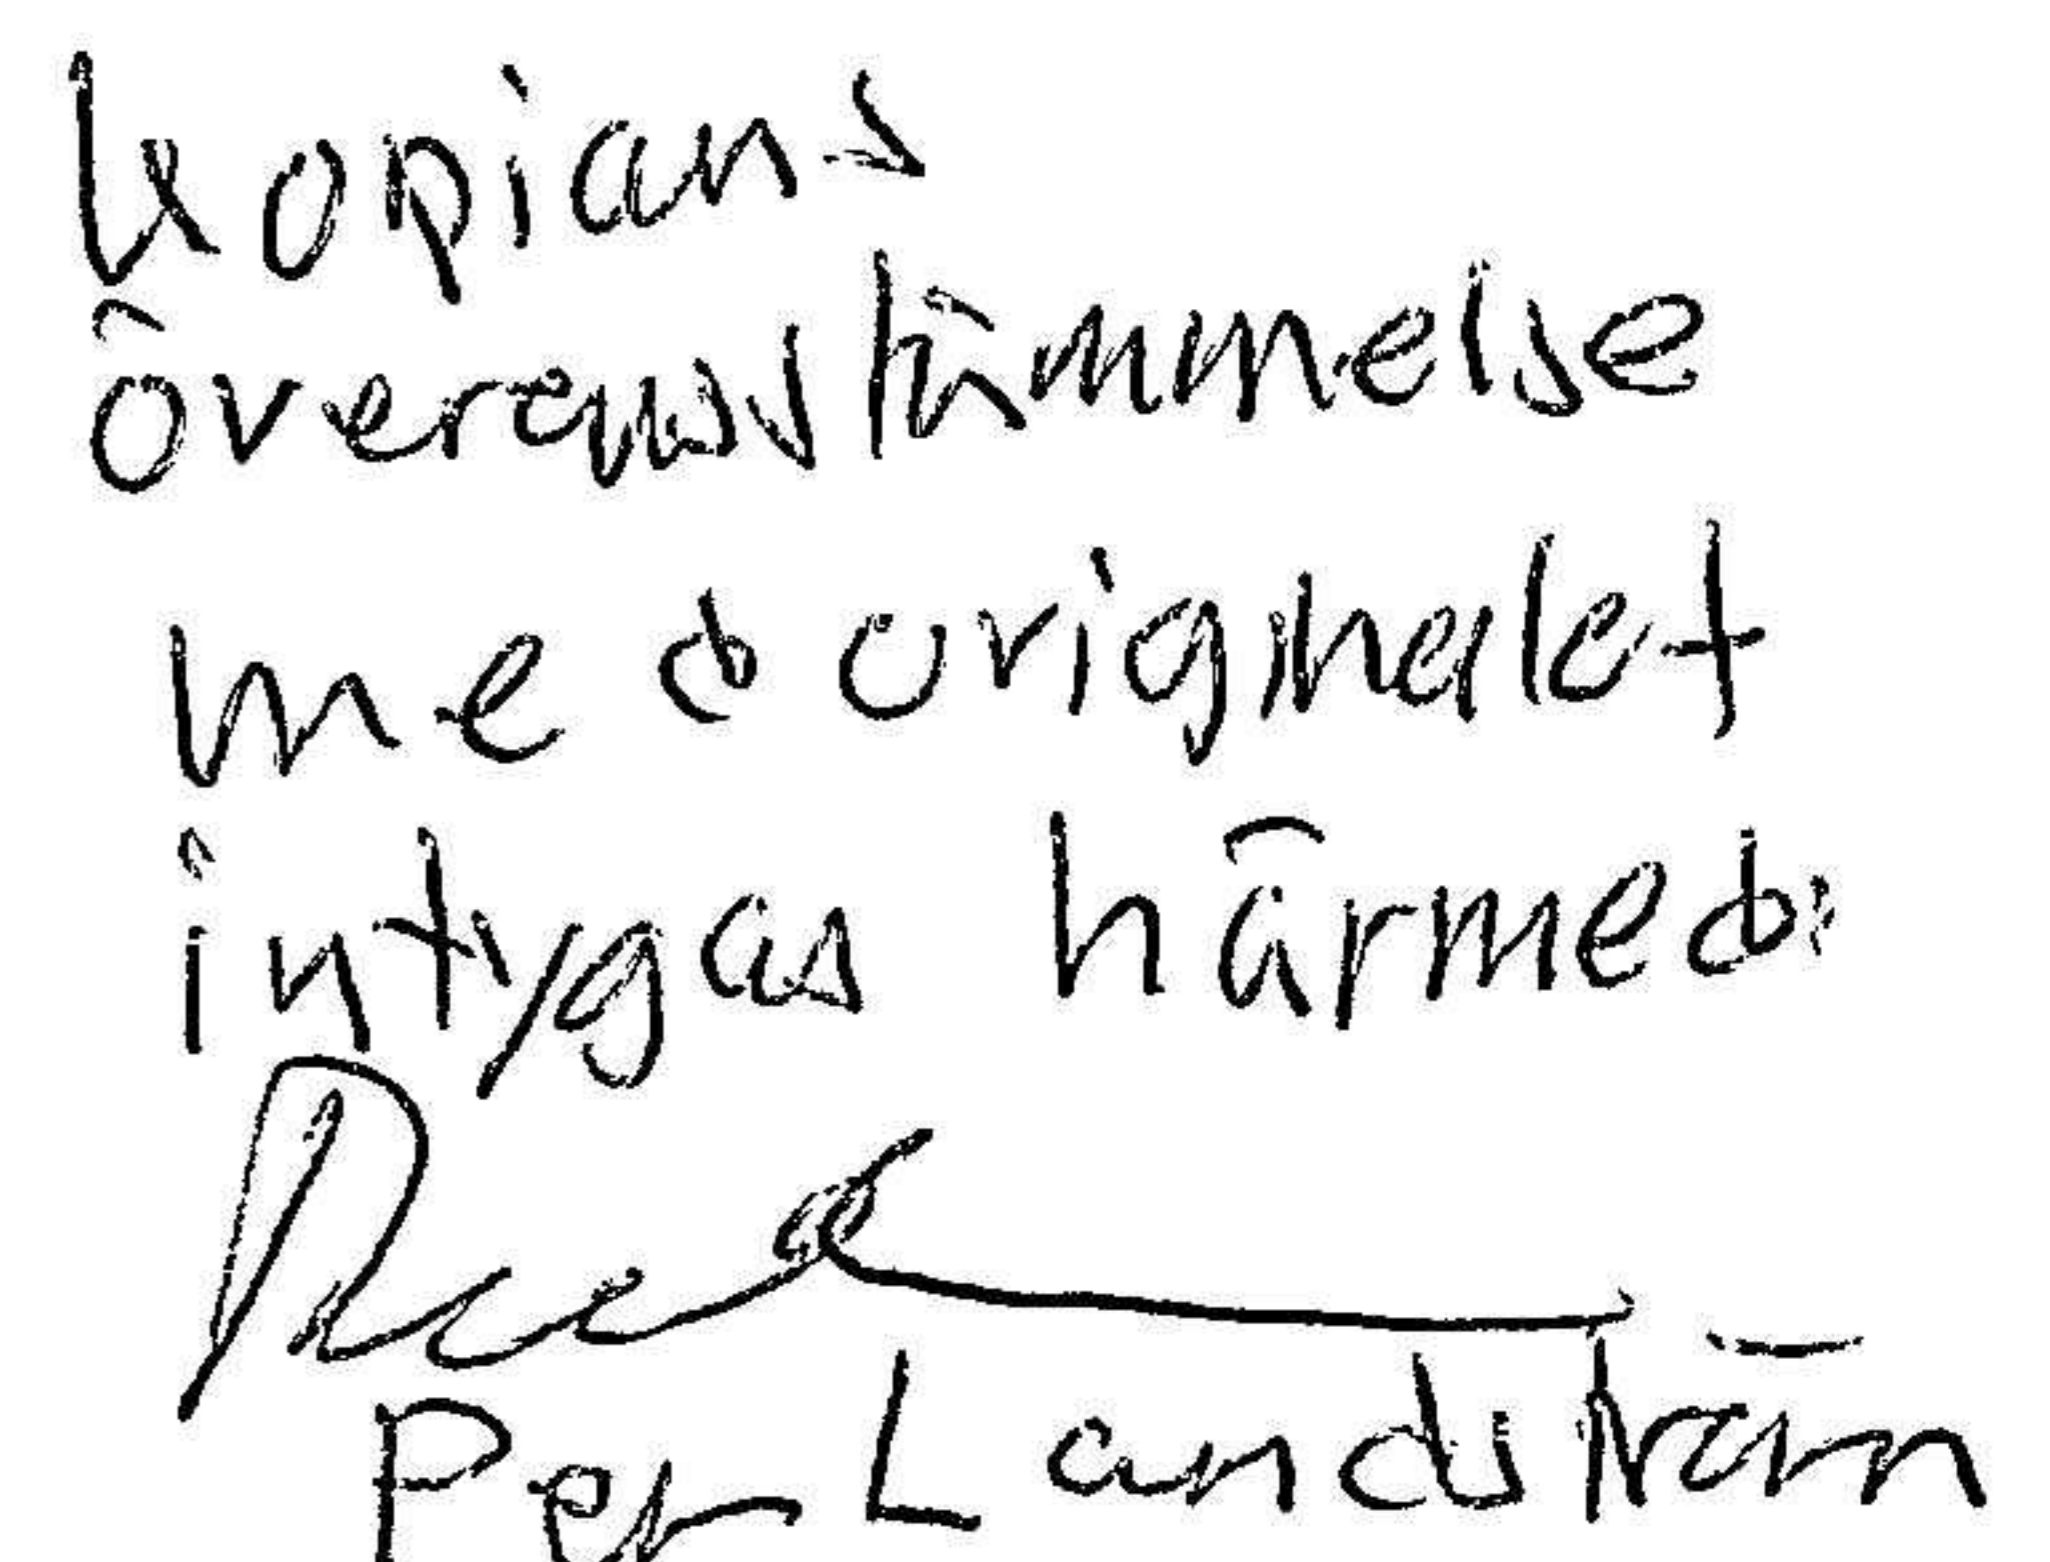 Kopians
överensstämmelse
med originalet
intygas härmed:
Per Landsträm